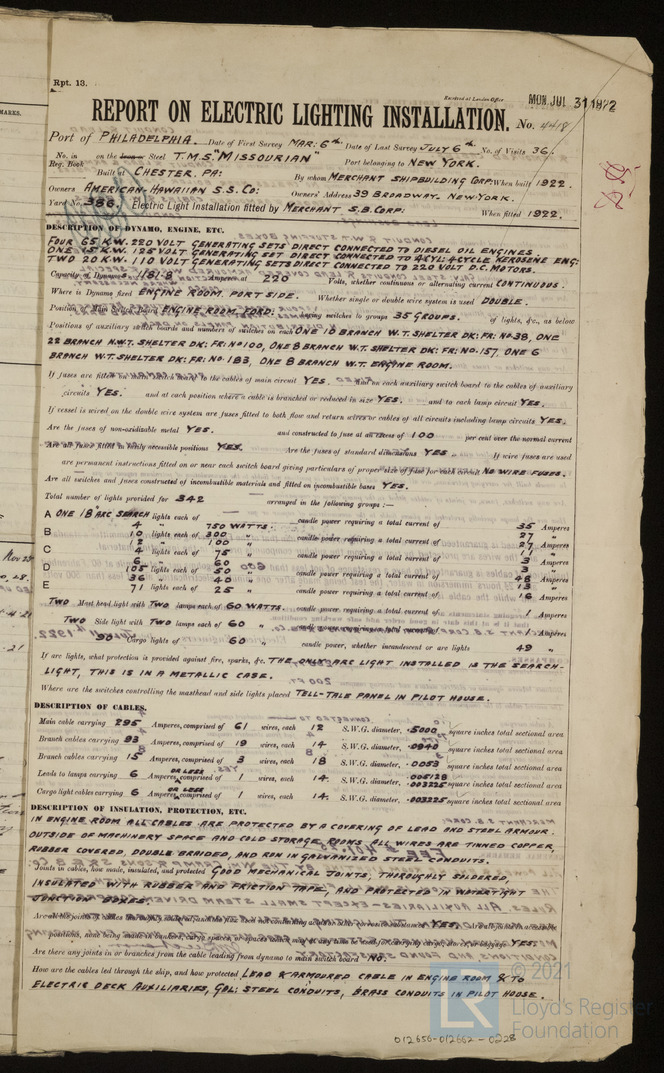 MARKS.
Rpt. 13.
Received at London Office
MON. JUL 31 1922
REPORT ON ELECTRIC LIGHTING INSTALLATION. No. 4418
Port of PHILADELPHIA. Date of First Survey MAR: 6th. Date of Last Survey JULY 6th No. of Visits 36.
No. in Reg. Book on the Iron or Steel T.M.S. "MISSOURIAN" Port belonging to NEW YORK.
Built at CHESTER, PA: By whom MERCHANT SHIPBUILDING CORP: When built 1922.
Owners AMERICAN-HAWAIIAN S.S. CO: Owners' Address 39 BROADWAY. NEW YORK.
Yard No. 386. Electric Light Installation fitted by MERCHANT S.B. CORP: When fitted 1922.
DESCRIPTION OF DYNAMO, ENGINE, ETC.
FOUR 65 K.W. 220 VOLT GENERATING SETS DIRECT CONNECTED TO DIESEL OIL ENGINES
ONE 15 K.W. 125 VOLT GENERATING SET DIRECT CONNECTED TO 4 CYL: 4 CYCLE KEROSENE ENG:
TWO 20 K.W. 110 VOLT GENERATING SETS DIRECT CONNECTED TO 220 VOLT D.C. MOTORS.
Capacity of Dynamos 1181.8 Amperes at 220 Volts, whether continuous or alternating current CONTINUOUS.
Where is Dynamo fixed ENGINE ROOM. PORT SIDE. Whether single or double wire system is used DOUBLE.
Position of Main Switch Board ENGINE ROOM, FORD. having switches to groups 35 GROUPS. of lights, &c., as below
Positions of auxiliary switch boards and numbers of switches on each ONE 10 BRANCH W.T. SHELTER DK: FR: No. 38, ONE
22 BRANCH N.W.T. SHELTER DK: FR: No 100, ONE 8 BRANCH W.T. SHELTER DK: FR: No. 157, ONE 6
BRANCH W.T. SHELTER DK: FR: No. 183, ONE 8 BRANCH W.T. ENGINE ROOM.
If fuses are fitted on main switch board to the cables of main circuit YES. and on each auxiliary switch board to the cables of auxiliary
circuits YES. and at each position where a cable is branched or reduced in size YES. and to each lamp circuit YES.
If vessel is wired on the double wire system are fuses fitted to both flow and return wires or cables of all circuits including lamp circuits YES.
Are the fuses of non-oxidizable metal YES. and constructed to fuse at an excess of 100 per cent over the normal current
Are all fuses fitted in easily accessible positions YES. Are the fuses of standard dimensions YES. If wire fuses are used
are permanent instructions fitted on or near each switch board giving particulars of proper size of fuse for each circuit NO WIRE FUSES.
Are all switches and fuses constructed of incombustible materials and fitted on incombustible bases YES.
Total number of lights provided for 342 arranged in the following groups :—
A ONE 18" ARC SEARCH lights each of candle power requiring a total current of 35 Amperes
4 " 750 WATTS. 27 "
B 10 lights each of 300 " candle power requiring a total current of 27 Amperes
12 " 100 " 11
C 4 lights each of 75 " candle power requiring a total current of 3 Amperes
6 " 60 3
D 105 lights each of 50 " candle power requiring a total current of 48 Amperes
36 " 40 " 13 "
E 71 lights each of 25 " candle power requiring a total current of 16 Amperes
TWO Mast head light with TWO lamps each of 60 WATTS candle power requiring a total current of 1 Amperes
TWO Side light with TWO lamps each of 60 " candle power requiring a total current of 1 Amperes
90 Cargo lights of 60 " candle power, whether incandescent or arc lights 49 "
If arc lights, what protection is provided against fire, sparks, &c. THE ONLY ARC LIGHT INSTALLED IS THE SEARCH-
LIGHT, THIS IS IN A METALLIC CASE.
Where are the switches controlling the masthead and side lights placed TELL-TALE PANEL IN PILOT HOUSE.
DESCRIPTION OF CABLES.
Main cable carrying 295 Amperes, comprised of 61 wires, each 12 S.W.G. diameter, .5000 square inches total sectional area
Branch cables carrying 93 Amperes, comprised of 19 wires, each 14 S.W.G. diameter, .0940 square inches total sectional area
Branch cables carrying 15 Amperes, comprised of 3 wires, each 18 S.W.G. diameter, .0053 square inches total sectional area
Leads to lamps carrying 6 OR LESS Amperes, comprised of 1 wires, each 14. S.W.G. diameter, .005128 .003225 square inches total sectional area
Cargo light cables carrying 6 OR LESS Amperes, comprised of 1 wires, each 14. S.W.G. diameter, .003225 square inches total sectional area
DESCRIPTION OF INSULATION, PROTECTION, ETC.
IN ENGINE ROOM ALL CABLES ARE PROTECTED BY A COVERING OF LEAD AND STEEL ARMOUR.
OUTSIDE OF MACHINERY SPACE AND COLD STORAGE ROOMS ALL WIRES ARE TINNED COPPER,
RUBBER COVERED, DOUBLE BRAIDED, AND RUN IN GALVANIZED STEEL CONDUITS.
Joints in cables, how made, insulated, and protected GOOD MECHANICAL JOINTS, THOROUGHLY SOLDERED,
INSULATED WITH RUBBER AND FRICTION TAPE, AND PROTECTED IN WATERTIGHT
JUNCTION BOXES.
Are all the joints of cables YES. Are all joints in accessible
positions, none being made in bunkers, cargo spaces, or spaces YES.
Are there any joints in or branches from the cable leading from dynamo to main switch board NO.
How are the cables led through the ship, and how protected LEAD & ARMOURED CABLE IN ENGINE ROOM & TO
ELECTRIC DECK AUXILIARIES, GAL: STEEL CONDUITS, BRASS CONDUITS IN PILOT HOUSE.
© 2021
LR
Lloyd's Register
Foundation
012656-012662-0228